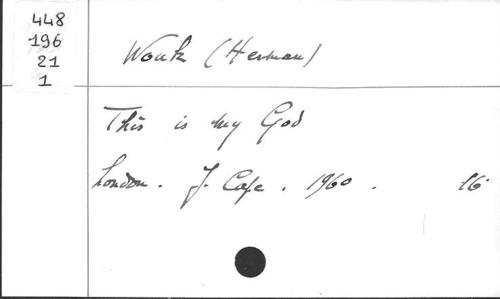 448
196
21
1
Wouk (Herman)
This is my God
London. J. Cape. 1960. 16°